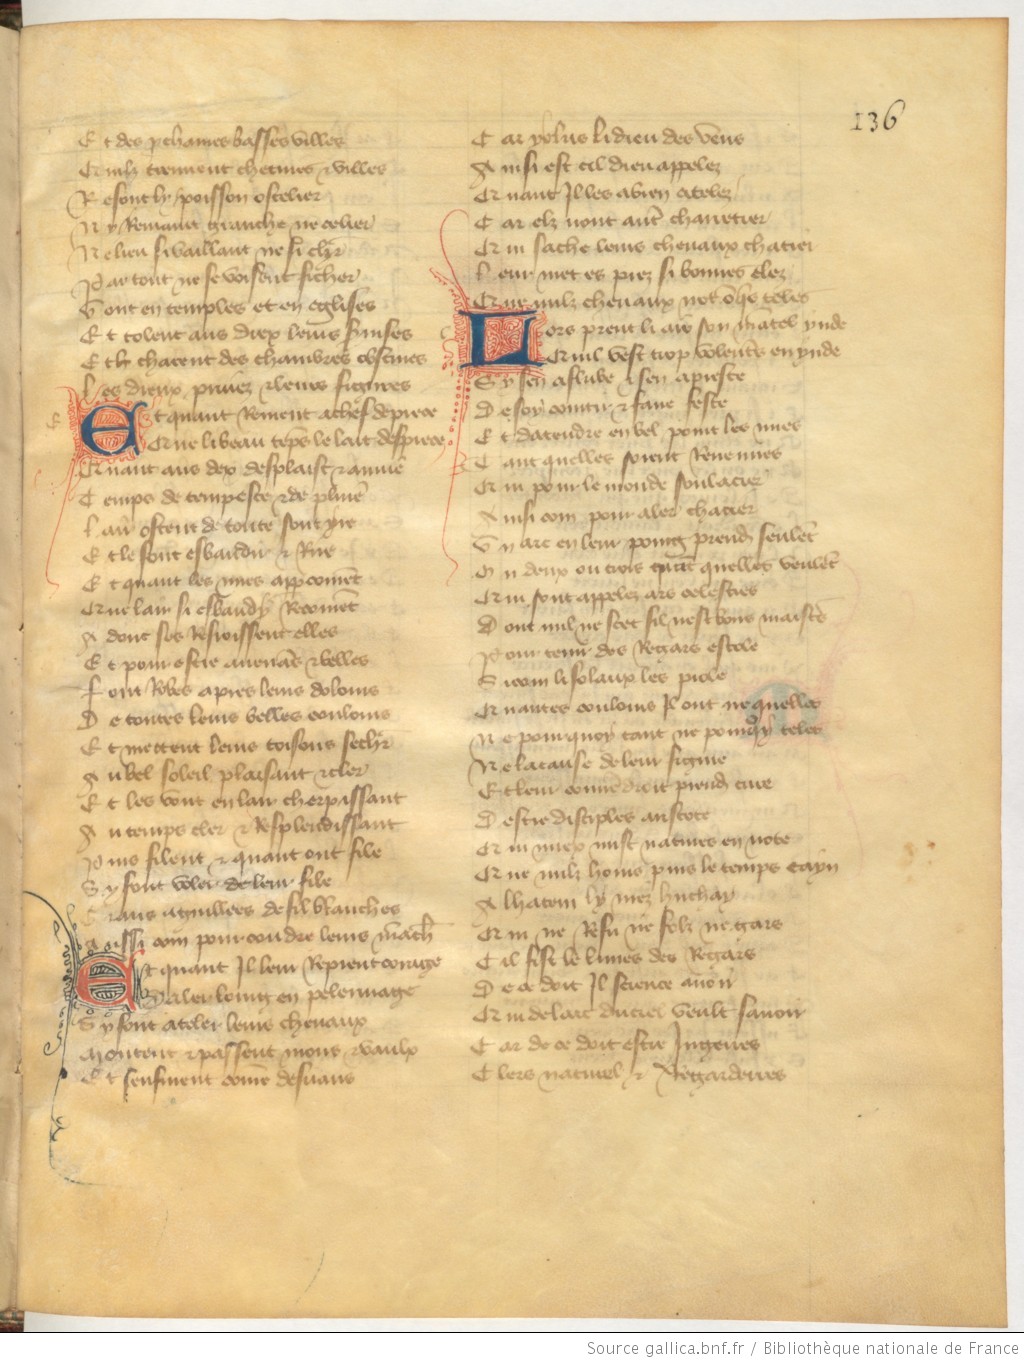 136
Et des prochaines basses villes
Quilz tiennent chetives et villes
Resont ly poisson ostelier
Ny Remaint granche ne celier
Ne lieu si vaillant ne si chier
Par tout ne se voisent ficher
Vont en temples et en eglises
Et tolent aus diex leurs
Et chacent des chambres obscures
Les dieux privez et leurs figures
Et quant Revient a chef de piece
Que li beau temps le lait despiece
Quant aus dex desplaist et annuie
Temps de tempeste et de pluie
Lair ostent de toute sont yre
Et le font esbaudir et Rire
Et quant les nues apparcoivent
Que lair si esbaudy Recoivent
Adonc ses Resioissent elles
Et pour estre avenans et belles
Font Robes apres leurs dolours
De toutes leurs belles coulours
Et mettent leurs toisons sechier
Au bel soleil plaisant et cler
Et les vont en lair cherpissant
Au temps cler et Resplendissant
Puis filent et quant ont file
Sy font voler de leur file
Grans aguillees de fil blanches
Aussi com pour coudre leurs manches
Et quant Il leur Reprent corage
Daler loing en pelerinage
Sy font ateler leurs chevaux
Montent et passent mons et vaulx
Et senfuient come desvans
Car yolus li dieu des vens
Ainsi est cil dieu appelez
Quant Il les a bien atelez
Car elz nont autre charretier
Qui sache leurs chevaux chatier
Leur met es piez si bonnes elez
Que nulz chevaux not onques teles
Lors prent li air son mantel ynde
Quil vest trop volentiers en ynde
Sy sen afluble et sen apreste
De soy cointir et faire feste
Et datendre en bel point les nues
Tant quelles soient Revenues
Qui pour le monde soulacier
Ainsi com pour aler chacier
Un arc en leur poing prendre seulent
Ou deux ou trois quant quelles veulent
Qui sont appelez ars celesties
Dont nul ne scet sil nest bons maistres
Pour tenir des Regars escole
Sicom li solaux les piole
Quantes coulours Il ont ne quelles
Ne pour quoy tant ne pour quoy teles
Ne la cause de leur figure
Et leur convendroit prendre cure
Destre disciples aristote
Qui miex mist natures en note
Que nulz homs puis le temps cayn
Alhacem ly niez huchay
Qui ne Refu ne folz ne gars
Cil fist le livres des Regars
De ce doit Il science avoir
Qui de larc du ciel veult savoir
Car de ce doit estre Jugierres
Clers naturel et Regarderres
Source gallica.bnf.fr / Bibliothèque nationale de France